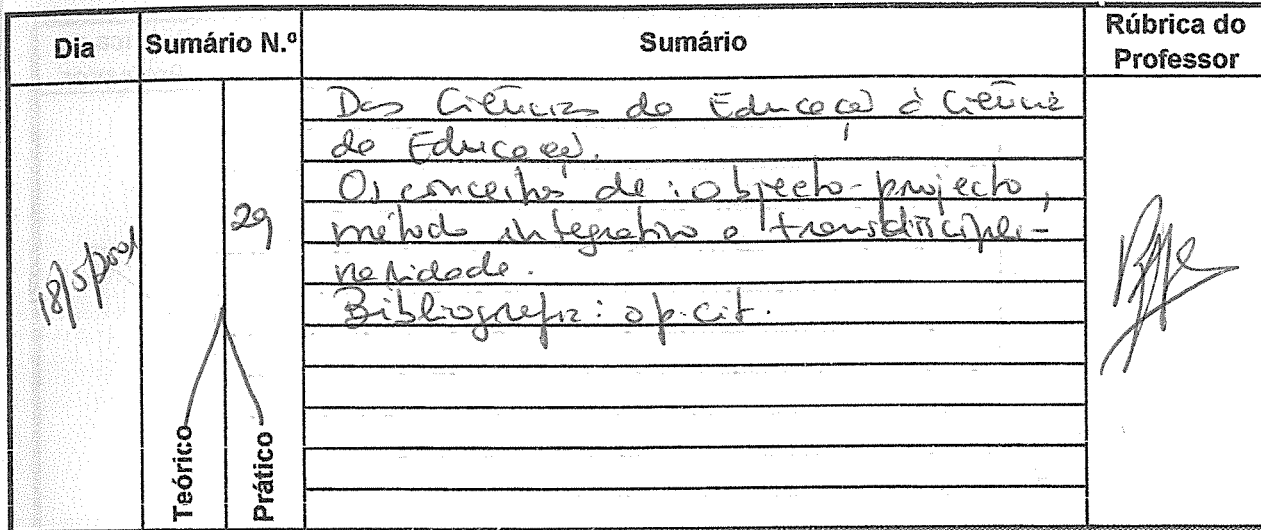 Dia
Sumário N.º
Sumário
Rúbrica do
Professor
18/5/2001
29
Das Ciências da Educação à Ciência
da Educação.
Os conceitos de: objecto-projecto,
método integrativo e transdiscipli-
naridade.
Bibliografia: op. cit.
Teórico
Prático